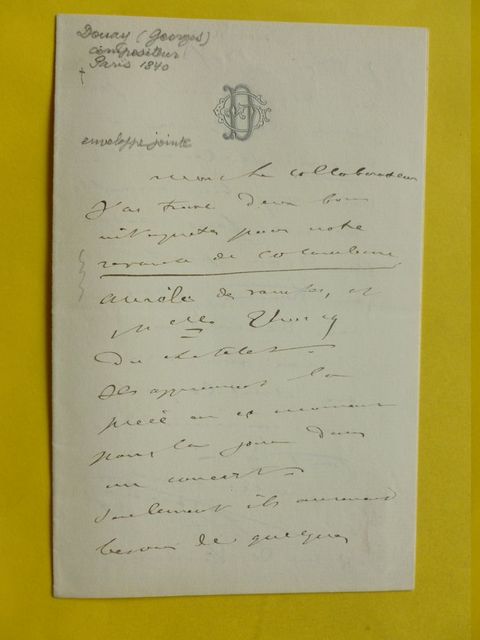 Douay (Georges)
compositeur
Paris 1840
enveloppe jointe
mon cher collaborateur
J'ai trouvé deux bons
interprètes pour notre
de colombine
des variétés, et
Melle
Du chatelet.
Ils apprennent la
pièce en ce moment
pour la jouer dans
un concert.
Seulement ils auraient
besoin de quelques